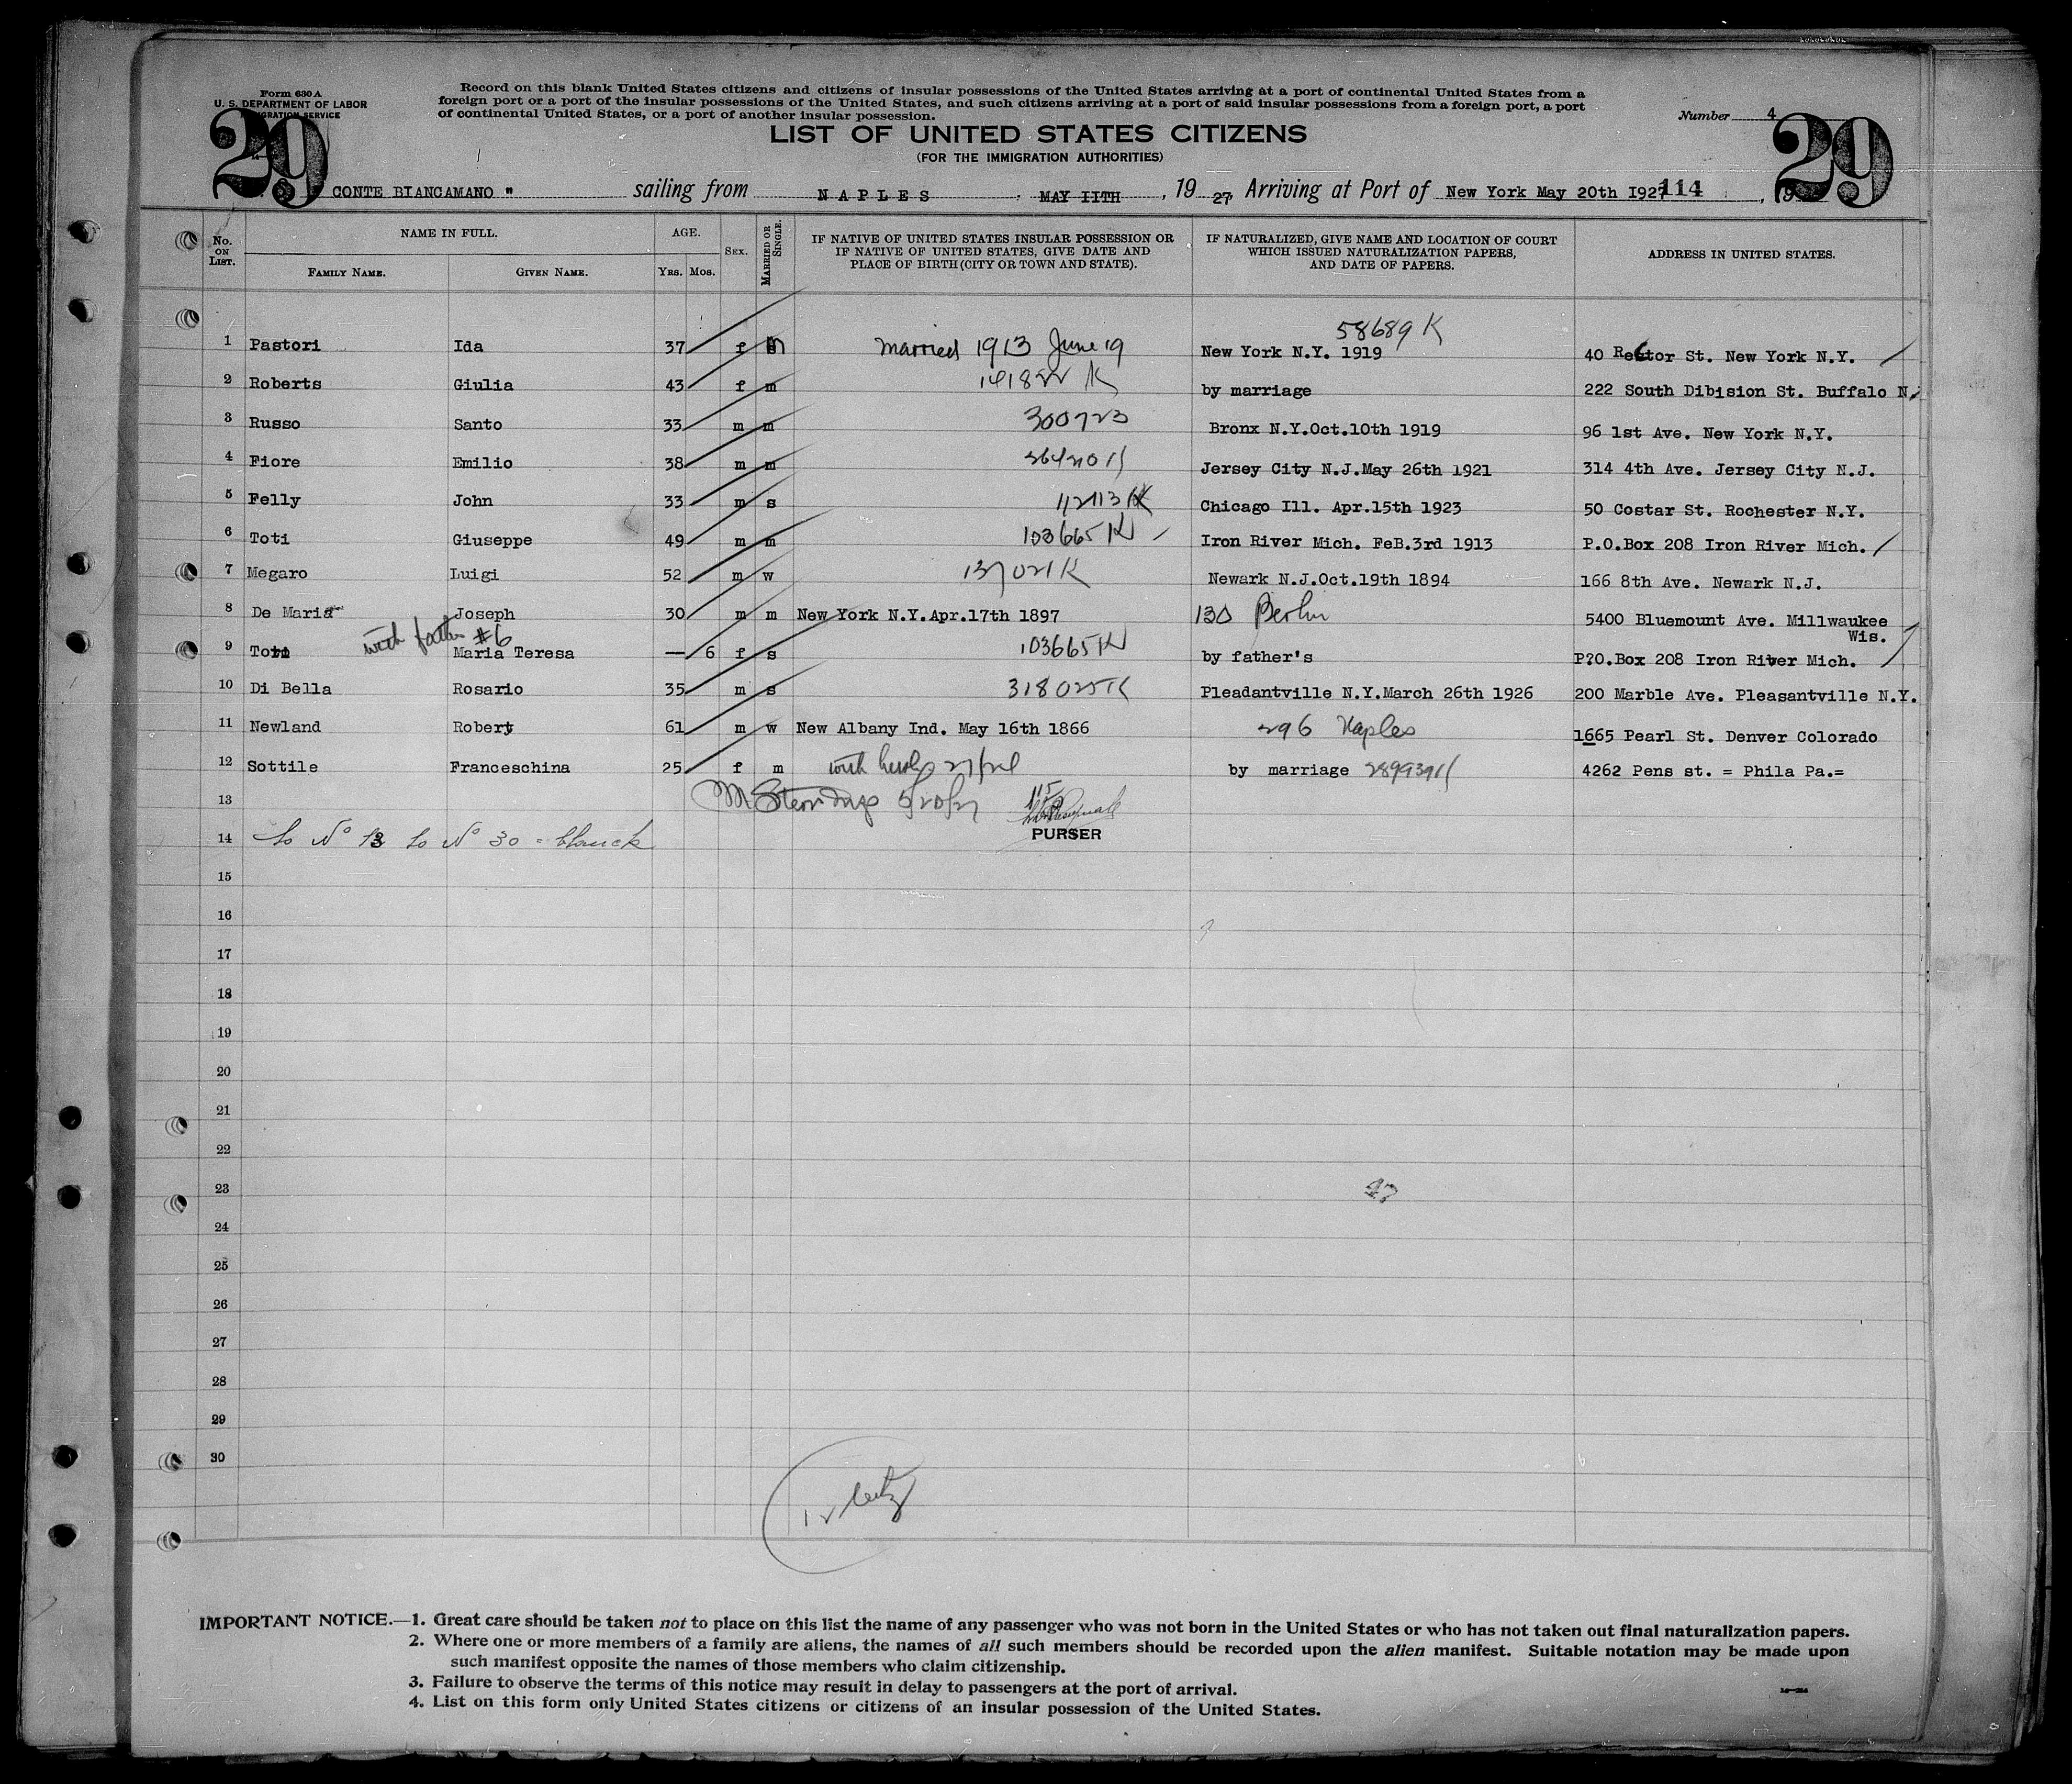 Form 630 A
U. S. DEPARTMENT OF LABOR
IGRATION SERVICE
29
Record on this blank United States citizens and citizens of insular possessions of the United States arriving at a port of continental United States from a
foreign port or a port of the insular possessions of the United States, and such citizens arriving at a port of said insular possessions from a foreign port, a port
of continental United States, or a port of another insular possession.
Number 4
29
LIST OF UNITED STATES CITIZENS
(FOR THE IMMIGRATION AUTHORITIES)
CONTE BIANCAMANO " sailing from NAPLES , MAY IITH , 19 27, Arriving at Port of New York May 20th I927 114 , 19
No. ON LIST. NAME IN FULL. AGE. SEX. MARRIED OR SINGLE. IF NATIVE OF UNITED STATES INSULAR POSSESSION OR IF NATIVE OF UNITED STATES, GIVE DATE AND PLACE OF BIRTH (CITY OR TOWN AND STATE). IF NATURALIZED, GIVE NAME AND LOCATION OF COURT WHICH ISSUED NATURALIZATION PAPERS, AND DATE OF PAPERS. ADDRESS IN UNITED STATES.
FAMILY NAME. GIVEN NAME. YRS. MOS.
58689 K
1 Pastori Ida 37 f m Married 1913 June 19 New York N.Y. 1919 40 Rector St. New York N.Y.
2 Roberts Giulia 43 f m 141822 K by marriage 222 South Dibision St. Buffalo N.
3 Russo Santo 33 m m 300723 Bronx N.Y.Oct.10th 1919 96 1st Ave. New York N.Y.
4 Fiore Emilio 38 m m Jersey City N.J.May 26th 1921 314 4th Ave. Jersey City N.J.
5 Felly John 33 m s Chicago Ill. Apr.15th 1923 50 Costar St. Rochester N.Y.
6 Toti Giuseppe 49 m m 103665 K Iron River Mich. FeB.3rd 1913 P.O.Box 208 Iron River Mich.
7 Megaro Luigi 52 m w 137021 K Newark N.J.Oct.19th 1894 166 8th Ave. Newark N.J.
8 De Maria Joseph 30 m m New York N.Y.Apr.17th 1897 130 Berlin 5400 Bluemount Ave. Millwaukee Wis.
with father #6
9 Toti Maria Teresa — 6 f s 103665 K by father's P?O.Box 208 Iron River Mich.
10 Di Bella Rosario 35 m s 318025 K Pleadantville N.Y.March 26th 1926 200 Marble Ave. Pleasantville N.Y.
11 Newland Robert 61 m w New Albany Ind. May 16th 1866 296 Naples 1665 Pearl St. Denver Colorado
12 Sottile Franceschina 25 f m with husb by marriage 289939 K 4262 Pens st. = Phila Pa.=
13 5/20/27
PURSER
14 to No 13 to No 30 = blanck
15
16
17
18
19
20
21
22
23
24
25
26
27
28
29
30
IMPORTANT NOTICE.—1. Great care should be taken not to place on this list the name of any passenger who was not born in the United States or who has not taken out final naturalization papers.
2. Where one or more members of a family are aliens, the names of all such members should be recorded upon the alien manifest. Suitable notation may be made upon
such manifest opposite the names of those members who claim citizenship.
3. Failure to observe the terms of this notice may result in delay to passengers at the port of arrival.
4. List on this form only United States citizens or citizens of an insular possession of the United States.